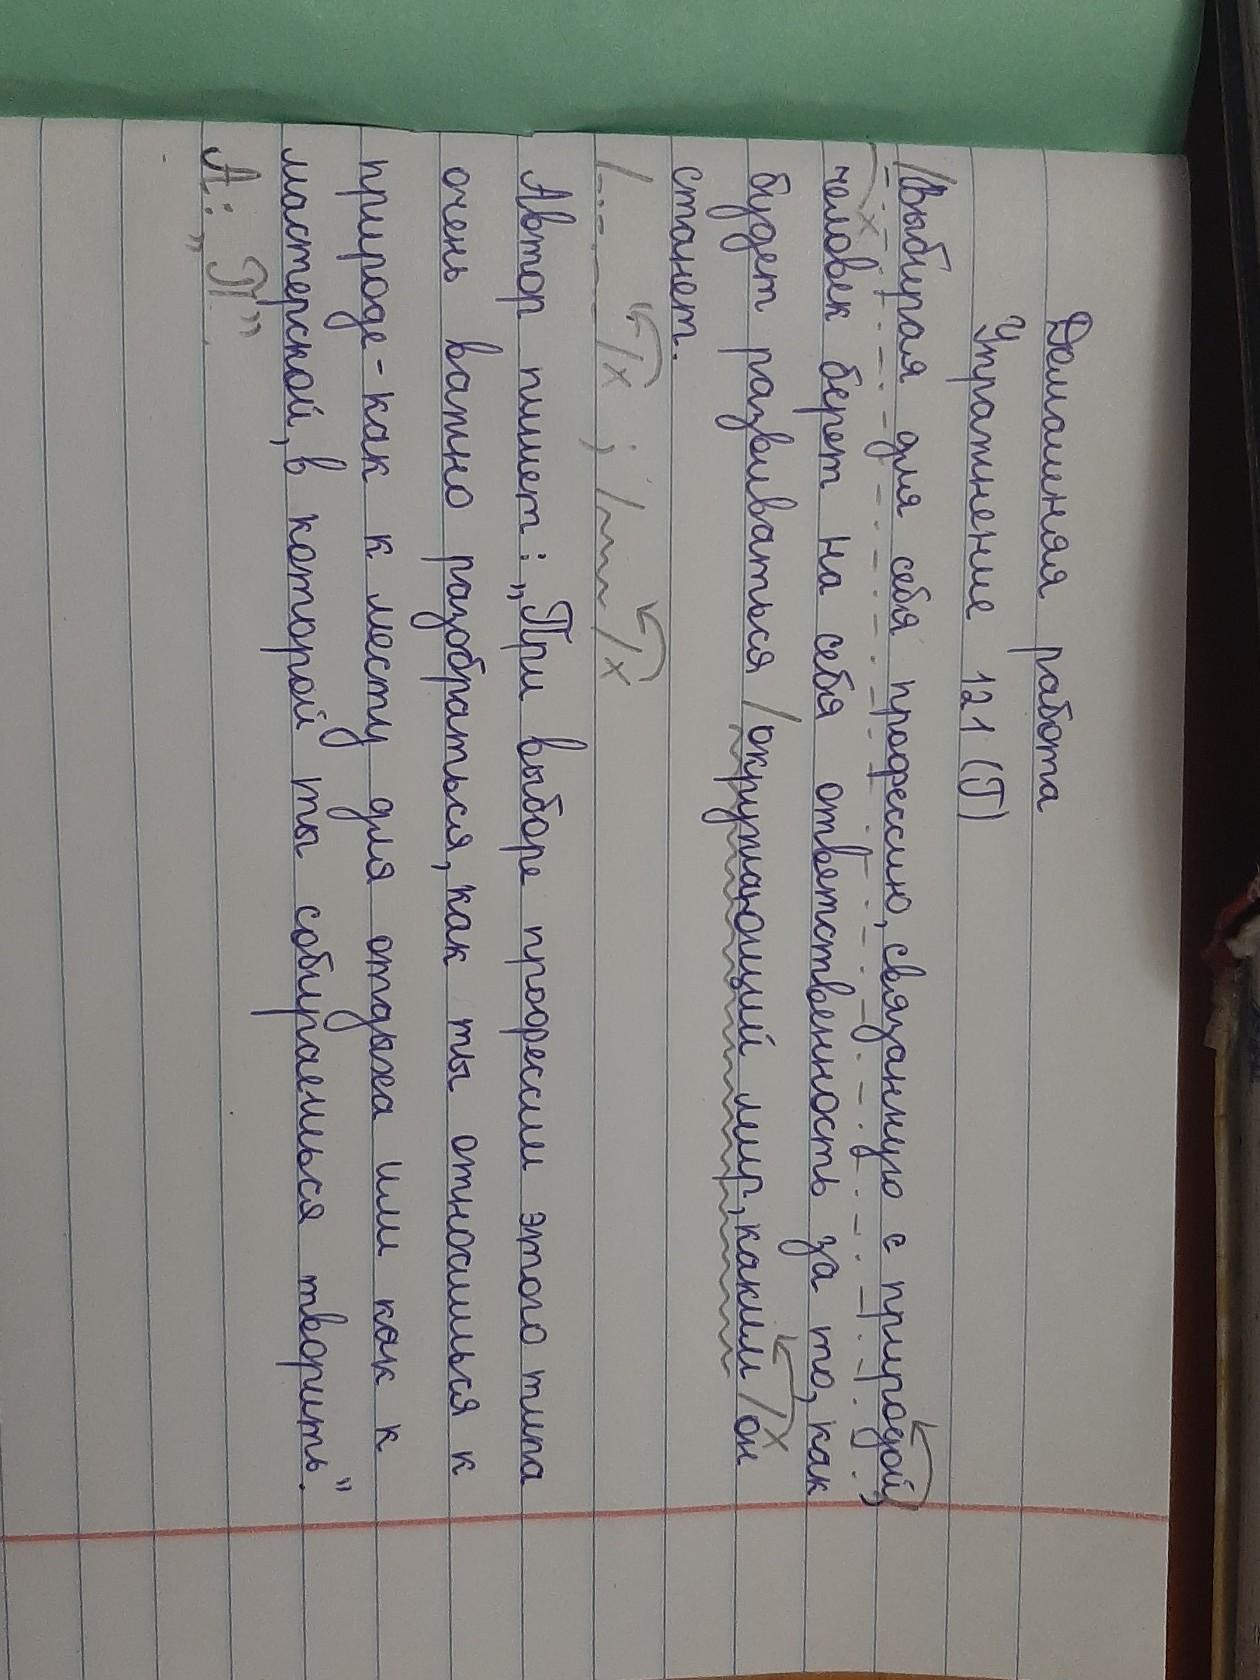 Домашняя работа
Упражнение 121 (Г)
/Выбирая для себя профессию, связанную с природой/,
человек берет на себя ответственность за то, как
будет развиваться /окружающий мир, каким/ он
станет.
/-.-.-/х ; /~~~/х
Автор пишет: „При выборе профессии этого типа
очень важно разобраться, как ты относишься к
природе - как к месту для отдыха или как к
мастерской, в которой ты собираешься творить."
А: „П"